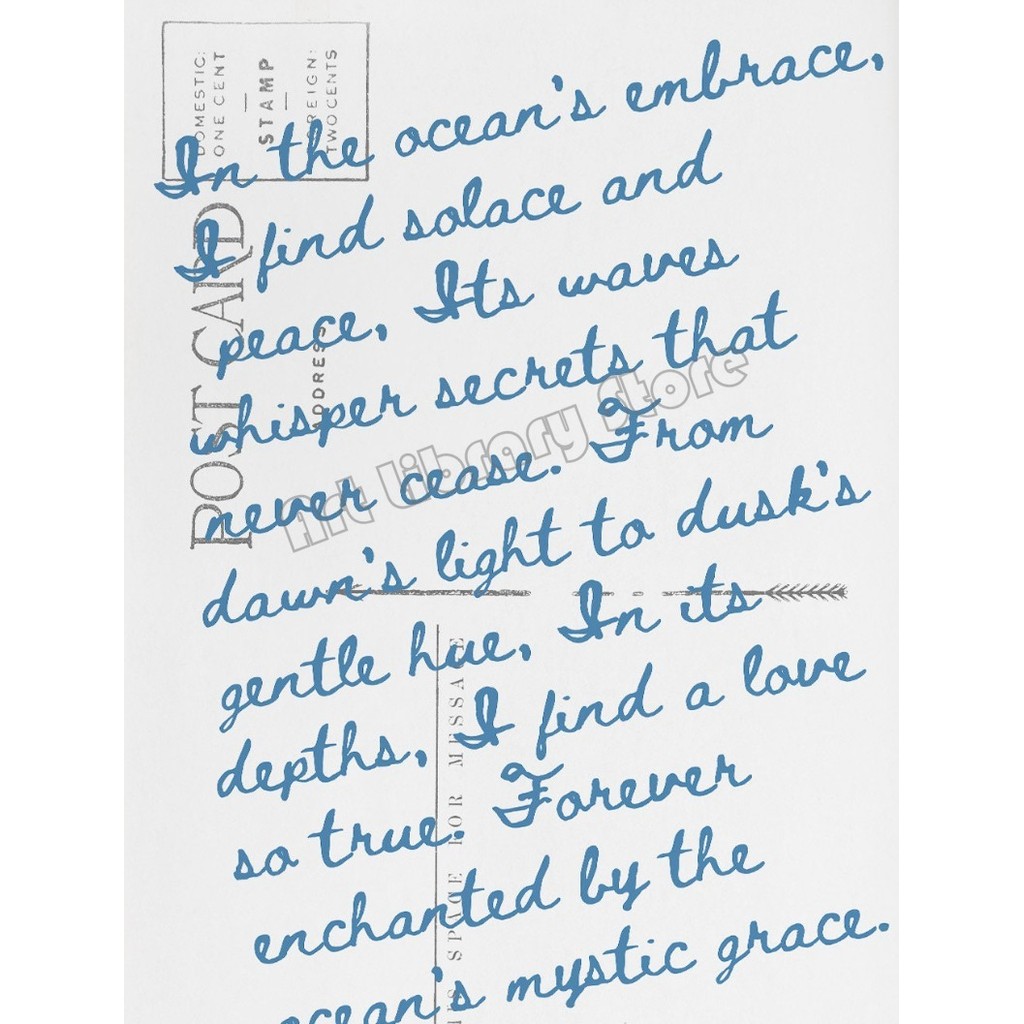 DOMESTIC:
ONE CENT
STAMP
FOREIGN:
TWO CENTS
POST CARD
ADDRESS
In the ocean's embrace,
I find solace and
peace, Its waves
whisper secrets that
never cease. From
dawn's light to dusk's
gentle hue, In its
depths, I find a love
so true. Forever
enchanted by the
ocean's mystic grace.
Art Library Store
THIS SPACE FOR MESSAGE